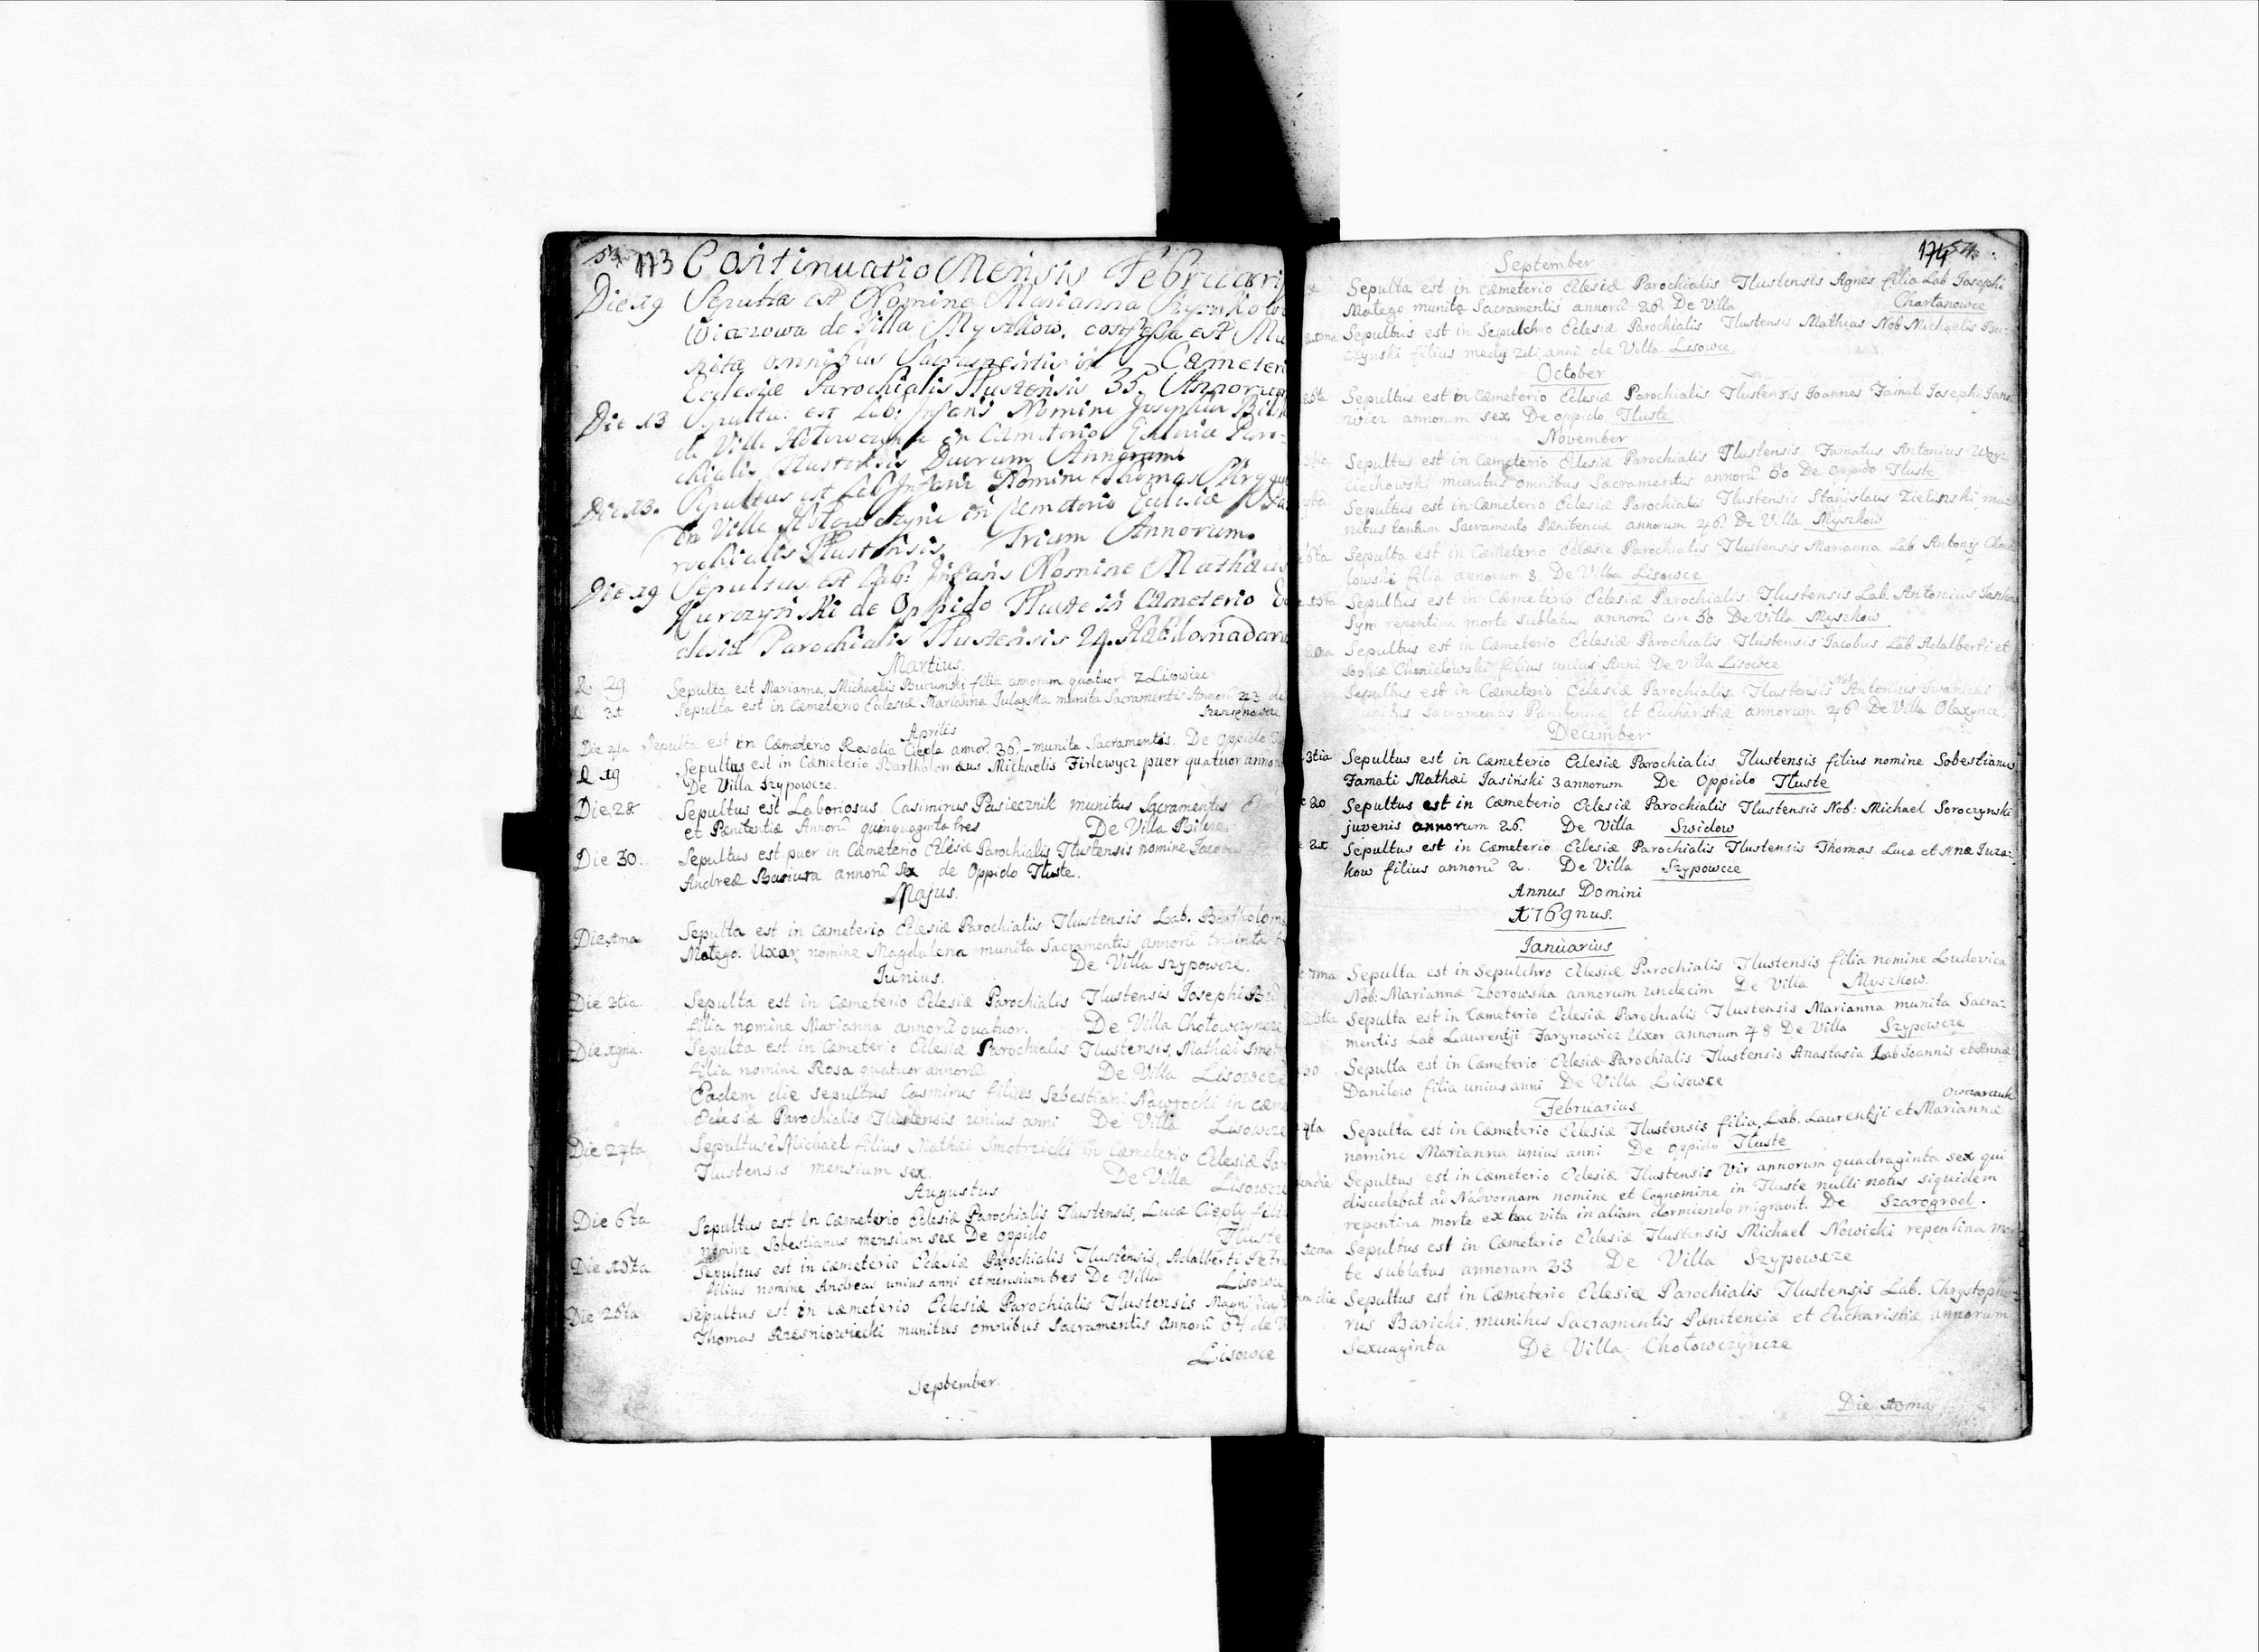 53 173 Continuatio Mensis Februarij
Die 19 Sepulta est Nomine Marianna
wiczowa de Villa Myszkow. est Mu
nita omnibus Sacramentis in Cæmeteri
Ecclesiæ Parochialis Tlustensis 35. Annorum
Die 13 Sepultu: est Lab: Infans Nomine Josephus
de Villa in Cæmeterio Ecclesiæ Paro-
chialis Tlustensis Duorum Annorum
Die 13. Sepultus est Lab Infans Nomine Thomas
in Villa in Cæmeterio Ecclesiæ Pa
rochialis Tlustensis Trium Annorum.
Die 19 Sepultus est Lab: Infans Nomine Mathæus
Kurczynski de Oppido Tluste in Cæmeterio Ec
clesiæ Parochialis Tlustensis 24. Habdomadar
Martius.
D. 29. Sepulta est Marianna Michaelis Bucznski filia annorum quatuor z Lisowiec
D 31 Sepulta est in Cæmeterio Eclesiæ Marianna munita Sacramentis Annorū 43 de
Aprilis
Die 4ta Sepulta est in Cæmeterio Rosalia Ciepla annor. 36. munita Sacramentis. De Oppido
D 19 Sepultus est in Cæmeterio Bartholomæus Michaelis Firlewycz puer quatuor annor
De Villa Szypowce.
Die 28. Sepultus est Laboriosus Casimirus Pasiecznik munitus Sacramentis
et Pænitentiæ Annorū quinquaginta tres De Villa Bilcze.
Die 30. Sepultus est puer in Cæmeterio Eclesiæ Parochialis Tlustensis nomine Jacobus
Andreæ Basiura annorū Sex de Oppido Tluste.
Majus.
Die 1ma Sepulta est in Cæmeterio Eclesiæ Parochialis Tlustensis Lab. Bartholom
Matego. Uxor nomine Magdalena munita Sacramentis annorū triginta
De Villa Szypowce.
Junius.
Die 3tia Sepulta est in Cæmeterio Eclesiæ Parochialis Tlustensis Josephi
filia nomine Marianna annorū quatuor. De Villa Chołowczyńcze
Die 19na. Sepulta est in Cæmeterio Eclesiæ Parochialis Tlustensis, Mathæi
filia nomine Rosa quatuor annorū De Villa Lisowcze
Eadem die sepultus Casimirus filius Sebestiani Nawrocki in cæm
Eclesiæ Parochialis Tlustensis unius anni De Villa Lisowcze
Die 27ta Sepultus e Michael filius Mathæi Smotrzicki in Cæmeterio Eclesiæ Par
Tlustensis mensium sex. De Villa Lisowcze
Augustus
Die 6ta Sepultus est in Cæmeterio Eclesiæ Parochialis Tlustensis, Lucæ Ciepły fili
nomine Sobestianus mensium sex De oppido Tluste
Die 15ta Sepultus est in Cæmeterio Eclesiæ Parochialis Tlustensis, Adalberti
filius nomine Andreas unius anni et mensium tres De Villa Lisowce
Die 25ta Sepultus est in Cæmeterio Eclesiæ Parochialis Tlustensis
Thomas Rzesniowiecki munitus omnibus Sacramentis Annorū 64 de V
Lisowce
September.
174 54.
September
Sepulta est in Cæmeterio Eclesiæ Parochialis Tlustensis Agnes filia Lab Josephi
Matego munita Sacramentis annorū 26 De Villa Chartanowce
Sepultus est in Sepulchro Eclesiæ Parochialis Tlustensis Mathias Nob Michaelis Bu-
czynski filius medij 2di anni de Villa Lisowce
October
Sepultus est in Cæmeterio Eclesiæ Parochialis Tlustensis Joannes Famati Josephi Jano
wicz annorum sex De oppido Tluste
November
Sepultus est in Cæmeterio Eclesiæ Parochialis Tlustensis Famatus Antonius Woy-
ciechowski munitus omnibus Sacramentis annorū 60 De oppido Tluste
Sepultus est in Cæmeterio Eclesiæ Parochialis Tlustensis Stanislaus Zielinski mu
nitus tantum Sacramento Pænitenciæ annorum 46 De Villa Myszkow
Sepulta est in Cæmeterio Eclæsiæ Parochialis Tlustensis Marianna Lab Antonij Chmie
lowski filia annorum 3. De Villa Lisowce
Sepultus est in Cæmeterio Eclesiæ Parochialis Tlustensis Lab. Antonius
Sym repentina morte sublatus annorū cir. 50 De Villa Myszkow.
Sepultus est in Cæmeterio Eclesiæ Parochialis Tlustensis Jacobus Lab Adalberti et
Sophiæ Chmielowski filius unius Anni De Villa Lisowce
Sepultus est in Cæmeterio Eclesiæ Parochialis Tlustensis Nob Antonius Iwanicki
munitus sacramentis Pænitenciæ et Eucharistiæ annorum 46 De Villa Olexynce.
December
3tia Sepultus est in Cæmeterio Eclesiæ Parochialis Tlustensis filius nomine Sobestianus
Famati Mathæi Jasiński 3 annorum De Oppido Tluste
20 Sepultus est in Cæmeterio Eclesiæ Parochialis Tlustensis Nob: Michael Soroczynski
juvenis annorum 26. De Villa Swidow
21 Sepultus est in Cæmeterio Eclesiæ Parochialis Tlustensis Thomas Lucæ et Anæ Juza-
kow filius annorū 2. De Villa Szypowce
Annus Domini
1769nus.
Januarius
7ma Sepulta est in Sepulchro Eclesiæ Parochialis Tlustensis filia nomine Ludovica
Nob: Mariannæ Zborowska annorum undecim De Villa Myszkow.
Sepulta est in Cæmeterio Eclesiæ Parochialis Tlustensis Marianna munita Sacra-
mentis Lab Laurentji Farynowicz Uxor annorum 48 De Villa Szypowcze
Sepulta est in Cæmeterio Eclesiæ Parochialis Tlustensis Anastasia Lab Joannis et Annæ
Danilow filia unius anni De Villa Lisowce
Februarius
Owczarczuk
4ta Sepulta est in Cæmeterio Eclesiæ Tlustensis filia Lab. Laurentji et Mariannæ
nomine Marianna unius anni De Oppido Tluste
Sepultus est in Cæmeterio Eclesiæ Tlustensis Vir annorum quadraginta sex qui
discedebat ad Nadvornam nomine et Cognomine in Tluste nulli notus siquidem
repentina morte ex hac vita in aliam dormiendo migravit. De Szarogrod.
Sepultus est in Cæmeterio Eclesiæ Tlustensis Michael Nowicki repentina mor
te sublatus annorum 33 De Villa Szypowcze
Sepultus est in Cæmeterio Eclesiæ Parochialis Tlustensis Lab. Chrystopho-
rus Baricki munitus Sacramentis Pænitenciæ et Eucharistiæ annorum
Sexuaginta De Villa Chołowczyńcze
Die 10ma